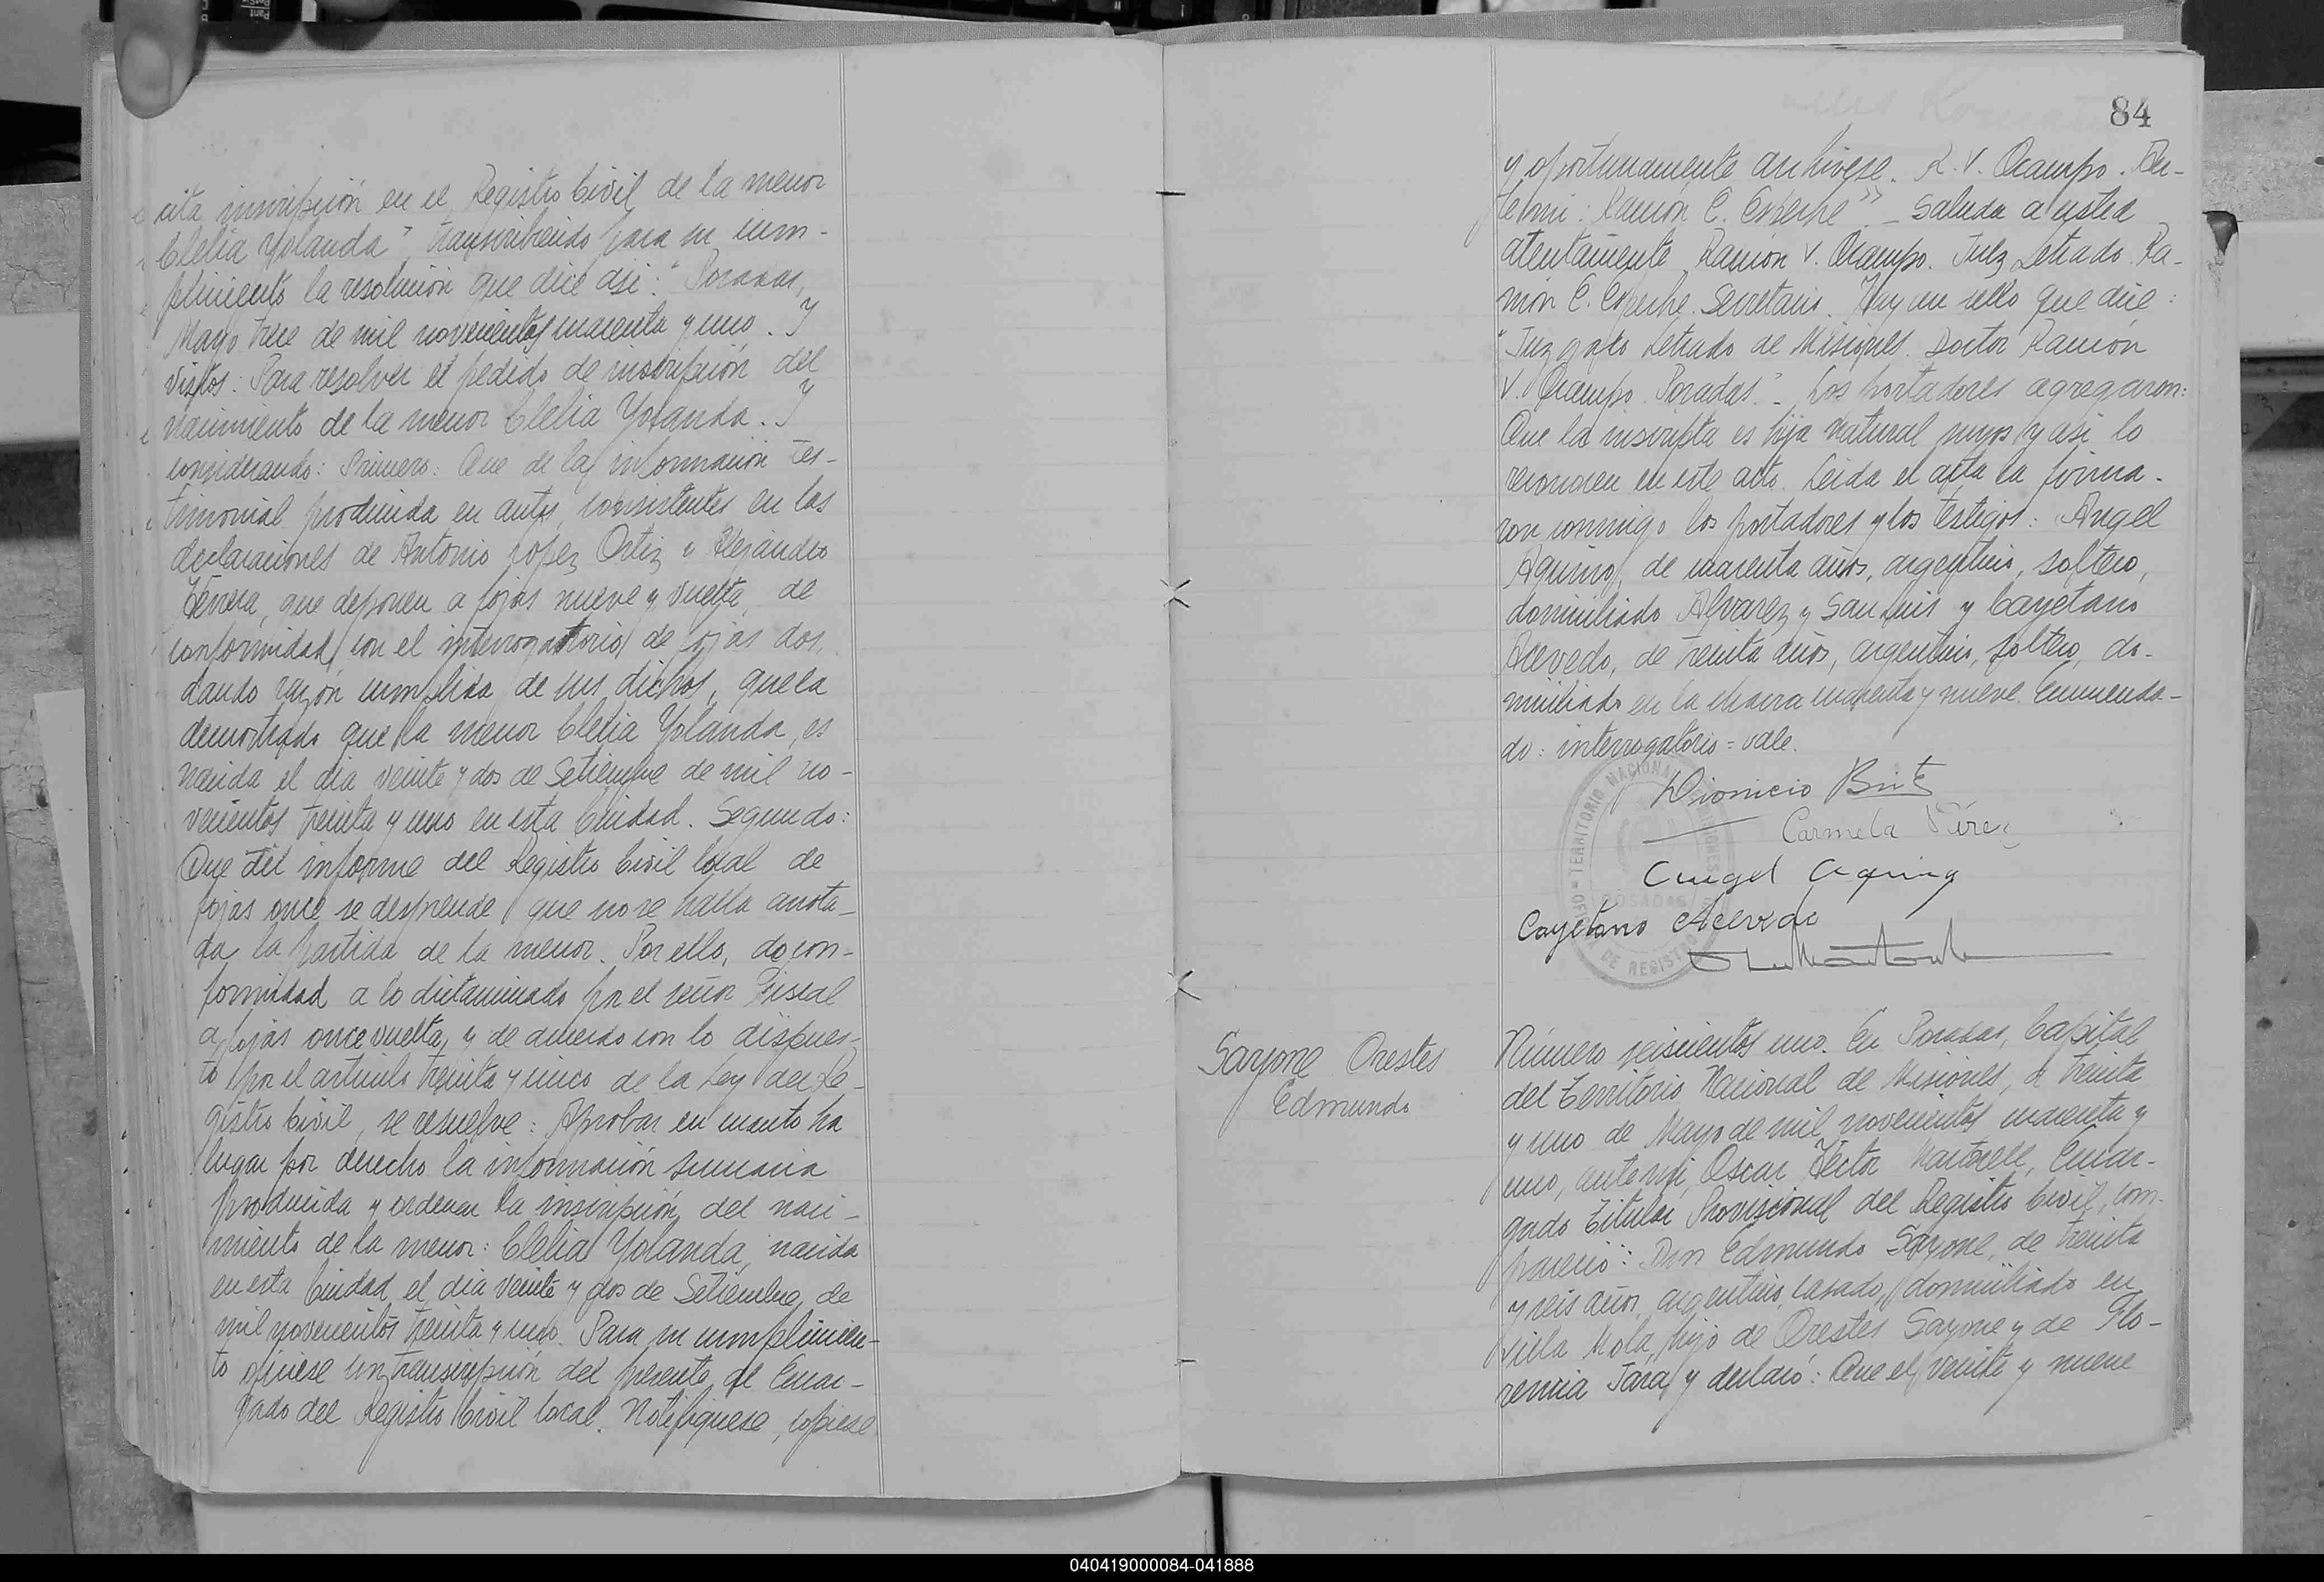 cita inscripción en el Registro Civil de la menor
Clelia Yolanda" transcribiendo para su cum-
plimiento la resolución que dice asi: "Posadas,
Mayo trece de mil novecientos cuarenta y uno. Y
Vistos: Para resolver el pedido de inscripción del
nacimiento de la menor Clelia Yolanda. Y
considerando: Primero: Que de la información tes-
timonial producida en autos, consistentes en las
declaraciones de Antonio López Ortiz y Alejandro
Herrera, que deponen a fojas nueve y vuelta, de
conformidad con el interrogatorio de fojas dos,
dando razón cumplida de sus dichos, queda
demostrado que la menor Clelia Yolanda, es
nacida el día veinte y dos de Setiembre de mil no-
vecientos treinta y uno en esta Ciudad. Segundo:
Que del informe del Registro Civil local de
fojas once se desprende que no se halla anota-
da la partida de la menor. Por ello, de con-
formidad a lo dictaminado por el señor Fiscal
a fojas once vuelta, y de acuerdo con lo dispues-
to por el artículo treinta y cinco de la Ley del Re-
gistro Civil, se resuelve: Aprobar en cuanto ha
lugar por derecho la información sumaria
producida y ordenar la inscripción del naci-
miento de la menor: Clelia Yolanda, nacida
en esta Ciudad el día veinte y dos de Setiembre de
mil novecientos treinta y uno. Para su cumplimien-
to oficiese con transcripción del presente al Encar-
gado del Registro Civil local. Notifiquese, copiese
84
y oportunamente archivese. R. V. Ocampo. An-
te mi: Ramón C. Espeche". - Saluda a usted
atentamente Ramón V. Ocampo. Juez Letrado. Ra-
món C. Espeche. Secretario. Hay un sello que dice:
"Juzgado Letrado de Misiones. Doctor Ramón
V. Ocampo. Posadas". - Los portadores agregaron:
Que la inscripta es hija natural suyos y asi lo
reconocen en este acto. Leida el acta la firma-
ron conmigo los portadores y los testigos: Angel
Aquino, de cuarenta años, argentino, soltero,
domiciliado Alvarez y San Luis y Cayetano
Acevedo, de treinta años, argentino, soltero, do-
miciliado en la chacra cuarenta y nueve. Enmenda-
do: interrogatorio = vale.
Dionicio Brite
Carmela Pérez
Angel Aquino
Cayetano Acevedo
TERRITORIO NACIONAL DE MISIONES
POSADAS
DE REGISTRO
Sayone Orestes
Edmundo
Número seiscientos uno. En Posadas, Capital
del Territorio Nacional de Misiones, a treinta
y uno de Mayo de mil novecientos cuarenta y
uno, ante mi, Oscar Héctor Martorell, Encar-
gado Titular Provisional del Registro Civil, com-
pareció: Don Edmundo Sayone, de treinta
y seis años, argentino, casado, domiciliado en
Villa Mola, hijo de Orestes Sayone y de Flo-
rencia Jara, y declaró: Que el veinte y nueve
040419000084-041888